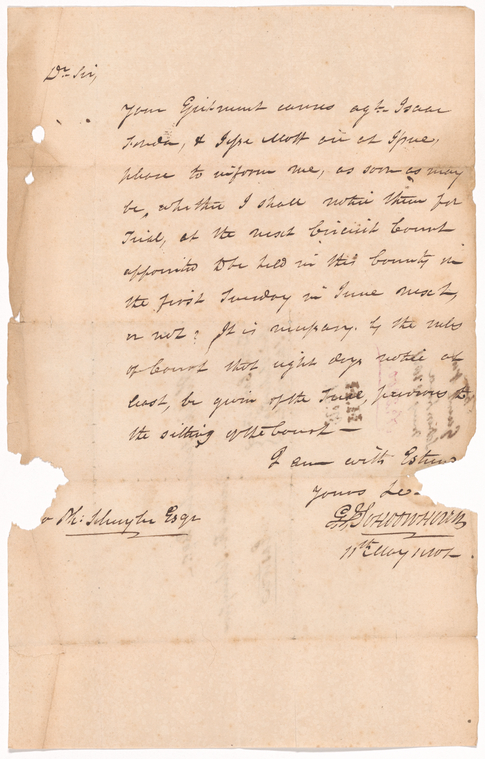 Dr. Sir,
Your Ejectment causes agt. Isaac
Fonda, & Jesse Mott are at Issue,
please to inform me, as soon as may
be, whether I shall notice them for
Trial, at the next Circuit Court
appointed to be held in this County in
the first Tuesday in June next,
or not? It is necessary by the rules
of Court that eight days notice at
least, be given of the Trial, previous to
the sitting of the Court —
I am with Esteem
Yours &c
Ph: Schuyler Esqr
11th May